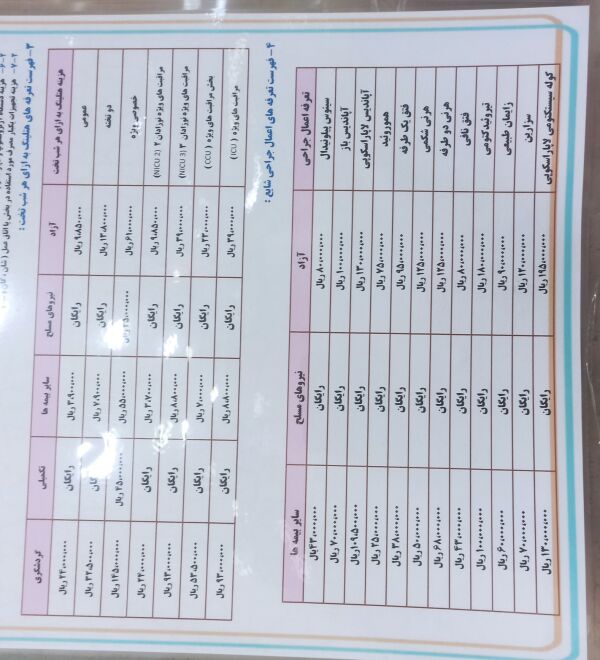 ۲-۷- هزینه تجهیزات یکبار مصرف مورد استفاده در بخش یا اتاق عمل (شان، گان و
۳- فهرست تعرفه های هتلینگ به ازای هر شب تخت :
هزینه هتلینگ به ازای هر شب تخت آزاد نیروهای مسلح سایر بیمه ها تکمیلی گردشگری
عمومی ۹،۸۵۰،۰۰۰ ریال رایگان ۳،۹۰۰،۰۰۰ ریال رایگان ۲۴،۰۰۰،۰۰۰ ریال
دو تخته ۱۳،۸۰۰،۰۰۰ ریال رایگان ۷،۹۰۰،۰۰۰ ریال رایگان ۳۲،۵۰۰،۰۰۰ ریال
خصوصی ویژه ۶۱،۰۰۰،۰۰۰ ریال ۴۵،۰۰۰،۰۰۰ ریال ۵۵،۰۰۰،۰۰۰ ریال ۴۵،۰۰۰،۰۰۰ ریال ۱۴۵،۰۰۰،۰۰۰ ریال
مراقبت های ویژه نوزادان ۲ (NICU 2) ۹،۸۵۰،۰۰۰ ریال رایگان ۳،۷۰۰،۰۰۰ ریال رایگان ۲۴،۰۰۰،۰۰۰ ریال
مراقبت های ویژه نوزادان ۳ (NICU 3) ۳۹،۰۰۰،۰۰۰ ریال رایگان ۸،۸۰۰،۰۰۰ ریال رایگان ۹۳،۰۰۰،۰۰۰ ریال
بخش مراقبت های ویژه (CCU) ۲۲،۰۰۰،۰۰۰ ریال رایگان ۷،۰۰۰،۰۰۰ ریال رایگان ۵۳،۵۰۰،۰۰۰ ریال
مراقبت های ویژه (ICU) ۳۹،۰۰۰،۰۰۰ ریال رایگان ۸،۸۰۰،۰۰۰ ریال رایگان ۹۳،۰۰۰،۰۰۰ ریال
۴- فهرست تعرفه های اعمال جراحی شایع :
تعرفه اعمال جراحی آزاد نیروهای مسلح سایر بیمه ها
سینوس پیلونیدال ۸۰،۰۰۰،۰۰۰ ریال رایگان ۴۳،۰۰۰،۰۰۰ریال
آپاندیس باز ۱۰۰،۰۰۰،۰۰۰ ریال رایگان ۷۰،۰۰۰،۰۰۰ ریال
آپاندیس لاپاراسکوپی ۱۳۰،۰۰۰،۰۰۰ ریال رایگان ۱۰۹،۵۰۰،۰۰۰ریال
هموروئید ۷۵،۰۰۰،۰۰۰ ریال رایگان ۲۵،۰۰۰،۰۰۰ ریال
فتق یک طرفه ۹۵،۰۰۰،۰۰۰ ریال رایگان ۳۸،۰۰۰،۰۰۰ ریال
هرنی شکمی ۱۲۵،۰۰۰،۰۰۰ ریال رایگان ۵۰،۰۰۰،۰۰۰ ریال
هرنی دو طرفه ۱۲۵،۰۰۰،۰۰۰ ریال رایگان ۶۸،۰۰۰،۰۰۰ ریال
فتق نافی ۸۰،۰۰۰،۰۰۰ ریال رایگان ۴۳،۰۰۰،۰۰۰ ریال
تیروئیدکتومی ۱۸۰،۰۰۰،۰۰۰ ریال رایگان ۱۰۰،۰۰۰،۰۰۰ ریال
زایمان طبیعی ۹۰،۰۰۰،۰۰۰ ریال رایگان ۶۰،۰۰۰،۰۰۰ ریال
سزارین ۱۲۰،۰۰۰،۰۰۰ ریال رایگان ۷۰،۰۰۰،۰۰۰ ریال
کوله سیستکتومی لاپاراسکوپی ۱۹۵،۰۰۰،۰۰۰ ریال رایگان ۱۳۰،۰۰۰،۰۰۰ ریال